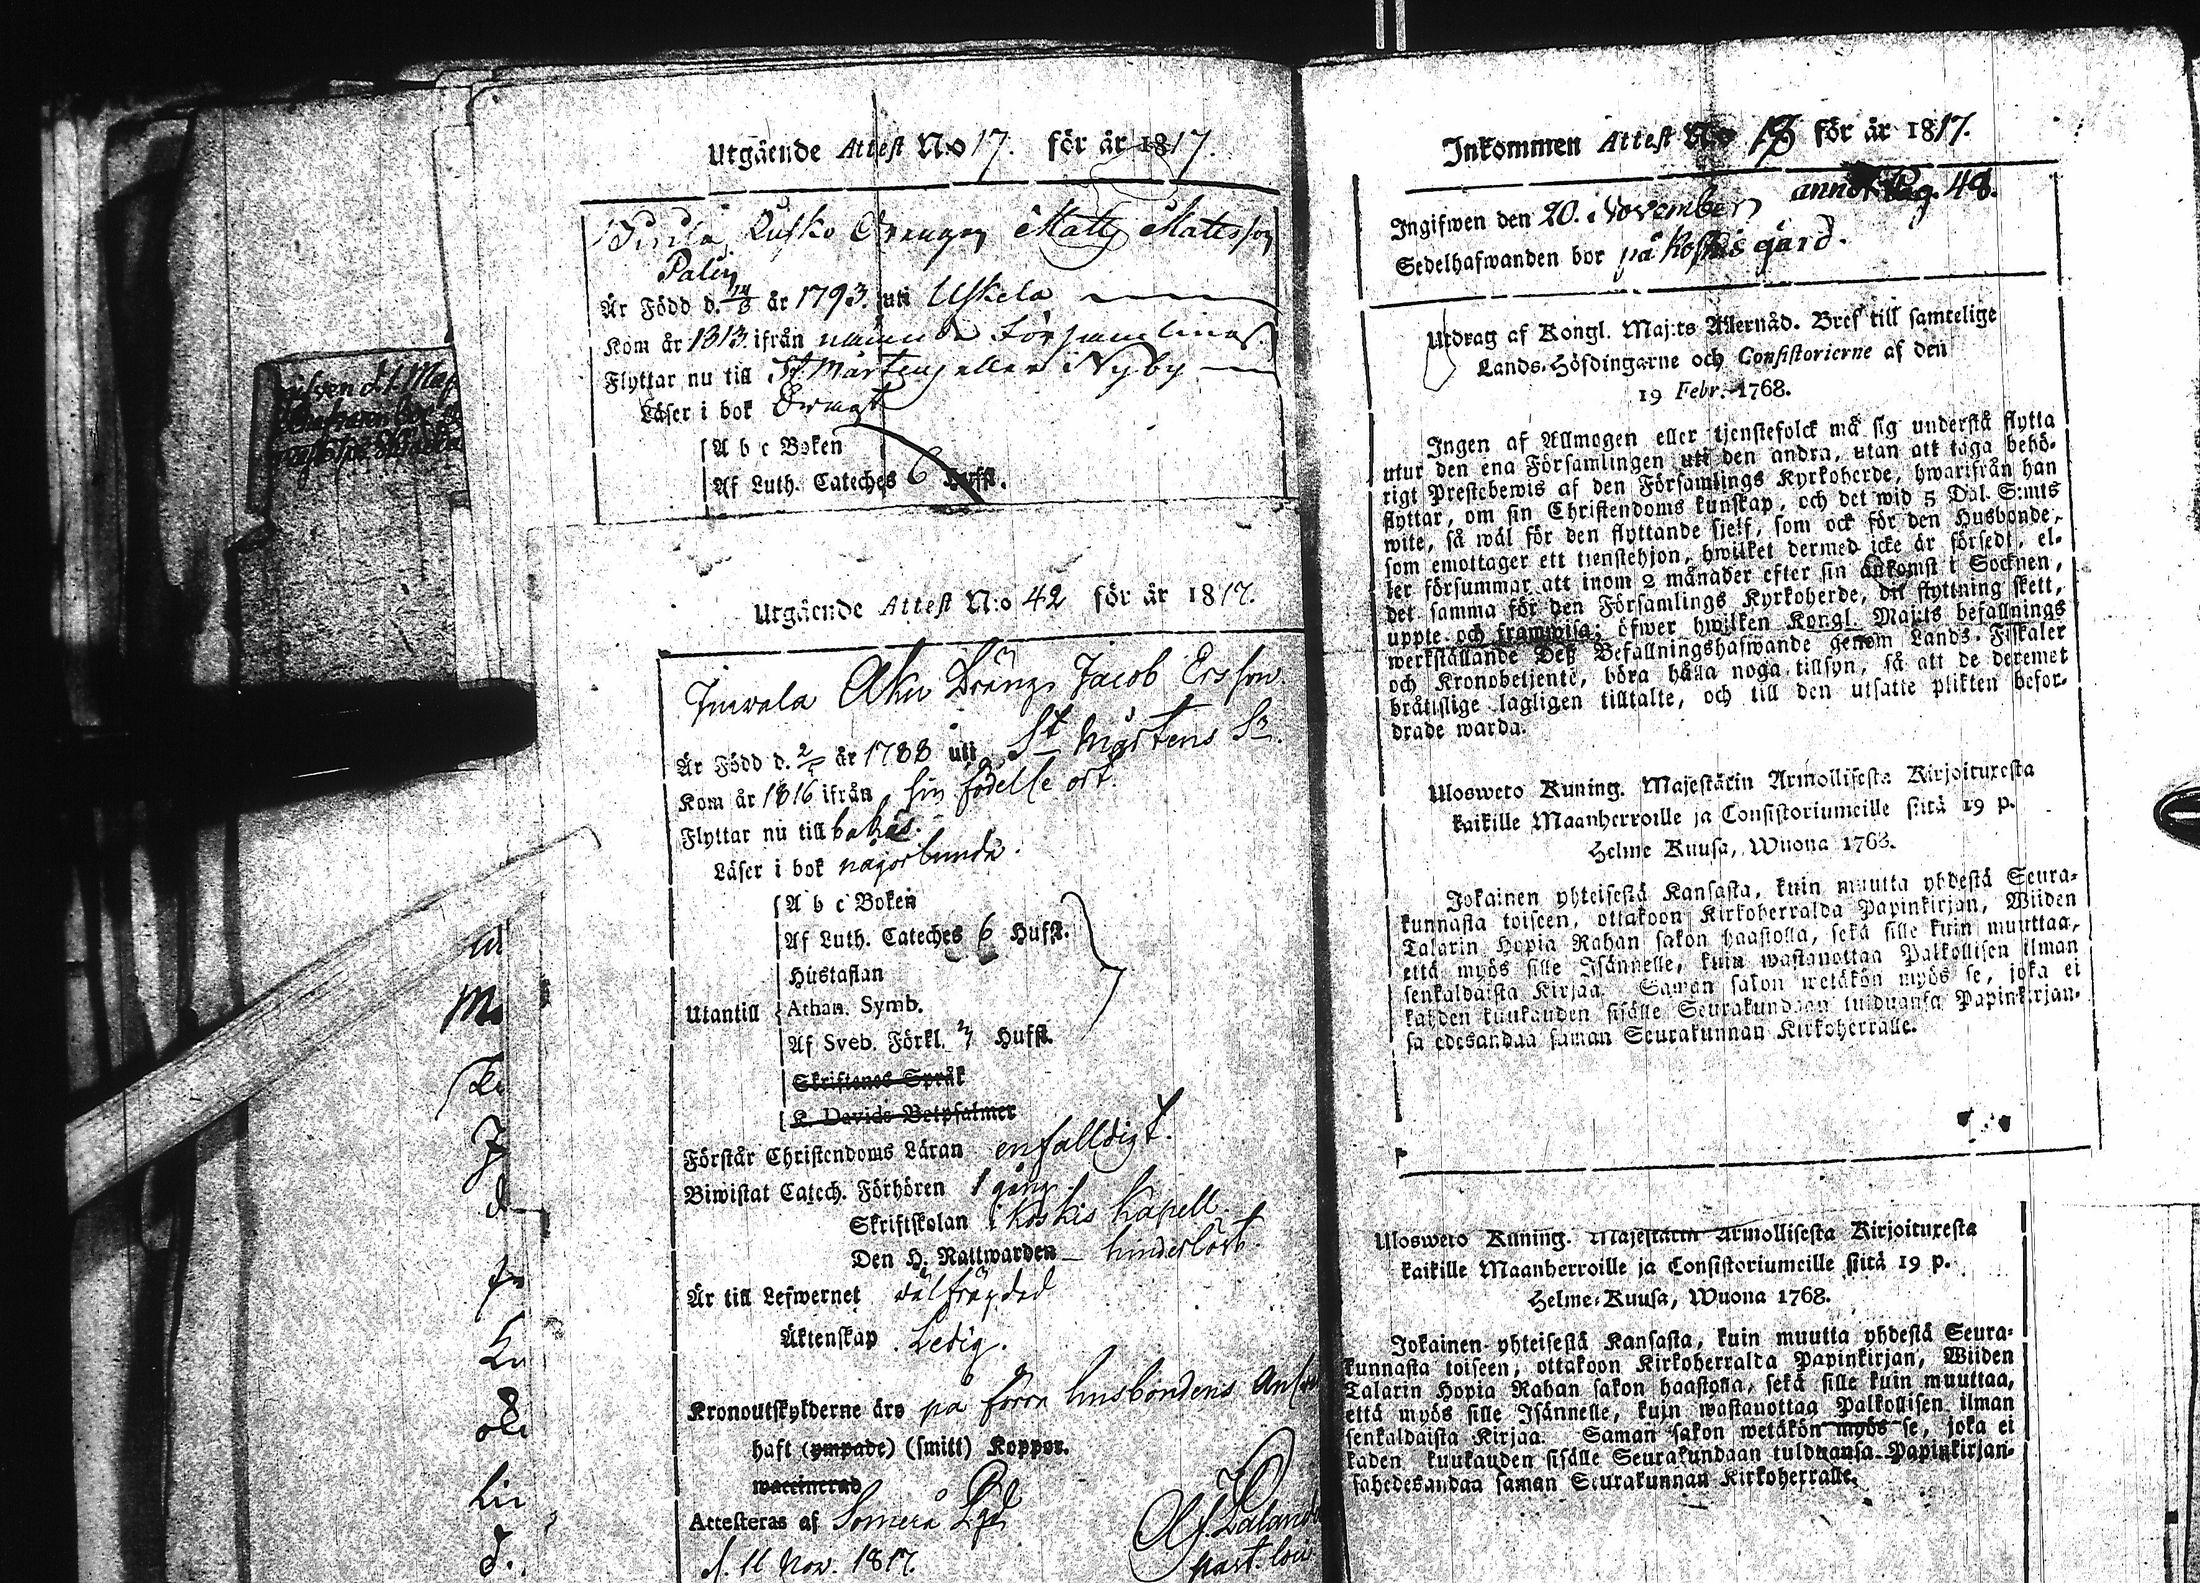 Utgående Attest N:o 17. för år 1817.
Rusko Drengen Matts Matsson
Palin
Är Född d. år 1793. uti Uskela
Kom år 1813. ifrån nämnde Församling.
Flyttar nu till St Mårtens eller Nyby
Läser i bok
A b c Boken
Af Luth. Cateches 6 Hufst.
Utgående Attest N:o 42 för år 1817.
Drängn Jacob Ersson
Är Född d. år 1788 uti St Mårtens Sn.
Kom år 1816 ifrån sin födelse ort.
Flyttar nu till bakas.
Läser i bok någorlunda.
A b c Boken
Af Luth. Cateches 6 Hufst.
Hustaflan
Utantill Athan. Symb.
Af Sveb. Förkl. Hufst.
Skriftenes Språk
K. Davids Botpsalmer
Förstår Christendoms Läran enfalldigt.
Biwistat Catech. Förhören 1 gång
Skriftskolan i Koskis Kapell.
Den H. Nattwarden hinderlöst.
Är till Lefwernet wälfrägdad
Äktenskap Ledig.
Kronoutskylderne äro på förra husbondens
haft (ympade) (smitt) Koppor.
waccinerad
Attesteras af Somero Pgd
d. 11 Nov. 1817.
Inkommen Attest N:o för år 1817.
Ingifwen den 20. November annot. Pag. 48.
Sedelhafwanden bor på Koskis gård.
Utdrag af Kongl. Maj:ts Allernåd. Bref till samtelige
Lands-Höfdingarne och Consistorierne af den
19 Febr. 1768.
Ingen af Allmogen eller tjenstefolck må sig understå flytta
utur den ena Församlingen uti den andra, utan att taga behö-
rigt Prestebewis af den Församlings Kyrkoherde, hwarifrån han
flyttar, om sin Christendoms kunskap, och det wid 5 Dal. S:mts
wite, så wäl för den flyttande sjelf, som ock för den Husbonde,
som emottager ett tienstehjon, hwilket dermed icke är försedt, el-
ler försummar att inom 2 månader efter sin ankomst i Socknen,
det samma för den Församlings Kyrkoherde, dit flyttning skett,
uppte och framwisa; öfwer hwilken Kongl. Maj:ts befallnings
werkställande Deß Befallningshafwande genom Lands-Fiskaler
och Kronobetjente, böra hålla noga tillsyn, så att de deremot
bråtislige lagligen tilltalte, och till den utsatte plikten befor-
drade warda.
Uloswero Kuning. Majestätin Armollisesta Kirjoituxesta
kaikille Maanherroille ja Consistoriumeille siitä 19 p.
Helme Kuusa, Wuona 1768.
Jokainen yhteisestä Kansasta, kuin muutta yhdestä Seura-
kunnasta toiseen, ottakoon Kirkoherralda Papinkirjan, Wiiden
Talarin Hopia Rahan sakon haastolla, sekä sille kuin muuttaa,
että myös sille Isännelle, kuin wastanottaa Palkollisen ilman
senkaldaista Kirjaa. Saman sakon wetäkön myös se, joka ei
kahden kuukauden sisälle Seurakundaan tulduansa Papinkirjan-
sa edesandaa saman Seurakunnan Kirkoherralle.
Uloswero Kuning. Majestätin Armollisesta Kirjoituxesta
kaikille Maanherroille ja Consistoriumeille siitä 19 p.
Helme-Kuusa, Wuona 1768.
Jokainen yhteisestä Kansasta, kuin muutta yhdestä Seura-
kunnasta toiseen, ottakoon Kirkoherralda Papinkirjan, Wiiden
Talarin Hopia Rahan sakon haastolla, sekä sille kuin muuttaa,
että myös sille Isännelle, kuin wastanottaa Palkollisen ilman
senkaldaista Kirjaa. Saman sakon wetäkön myös se, joka ei
kaden kuukauden sisälle Seurakundaan tulduansa Papinkirjan-
sahedesandaa saman Seurakunnan Kirkoherralle.